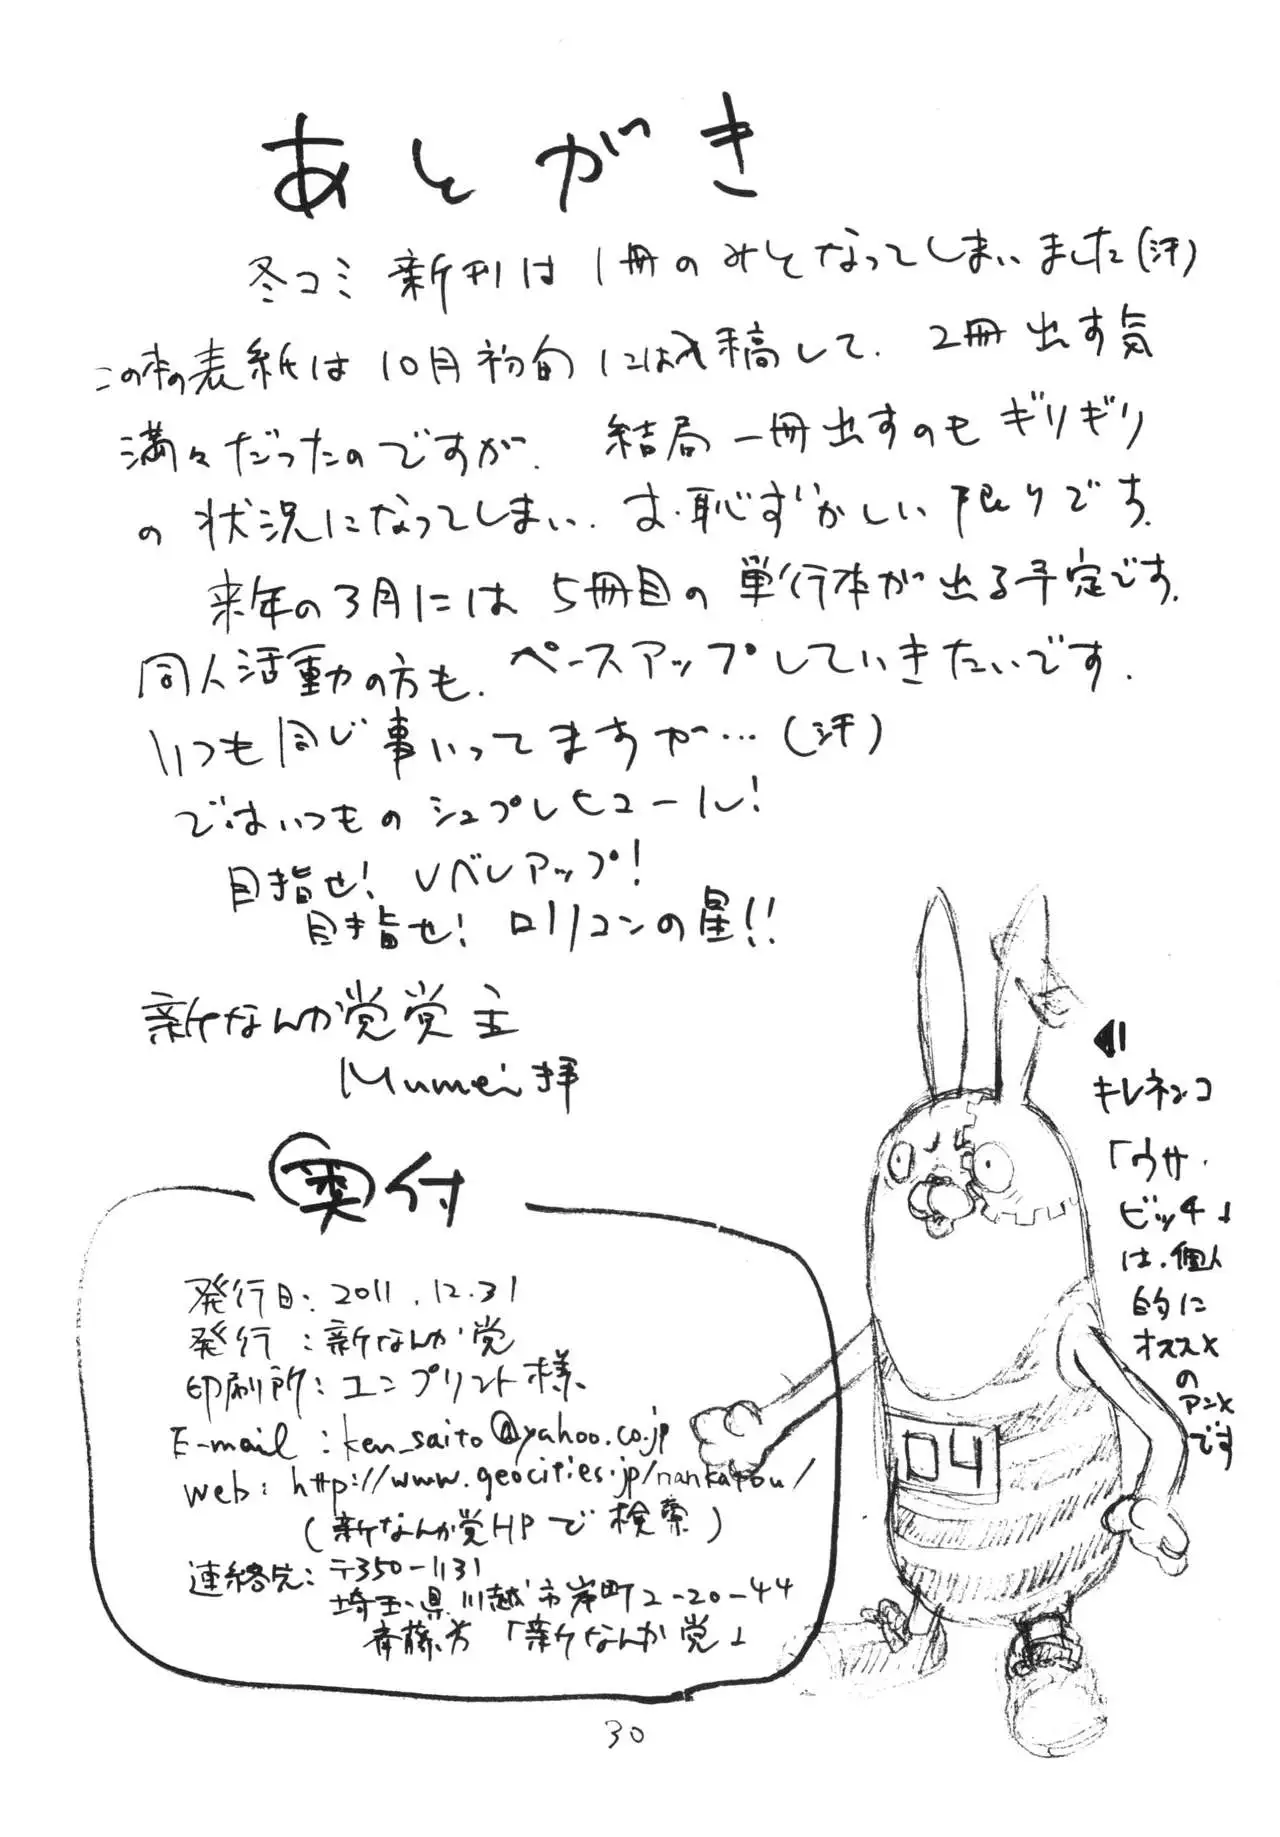 あとがき
冬コミ新刊は1冊のみとなってしまいました(汗)
この本の表紙は10月初旬には入稿して、2冊出す気
満々だったのですが、結局一冊出すのもギリギリ
の状況になってしまい、お恥ずかしい限りです。
来年の3月には5冊目の単行本が出る予定です。
同人活動の方も、ペースアップしていきたいです。
いつも同じ事いってますが…(汗)
ではいつものシュプレヒコール!
目指せ!レベルアップ!
目指せ!ロリコンの星!!
新なんか党党主
Mumei拝
キレネンコ
「ウサ・
ビッチ」
は、個人
的に
オススメ
の
アニメ
です
奥付
発行日:2011.12.31
発行:新なんか党
印刷所:ユニプリント様
E-mail:ken_saito@yahoo.co.jp
web:http://www.geocities.jp/nankatou/
(新なんか党HPで検索)
連絡先:〒350-1131
埼玉県川越市岸町2-20-44
斉藤方「新なんか党」
04
30